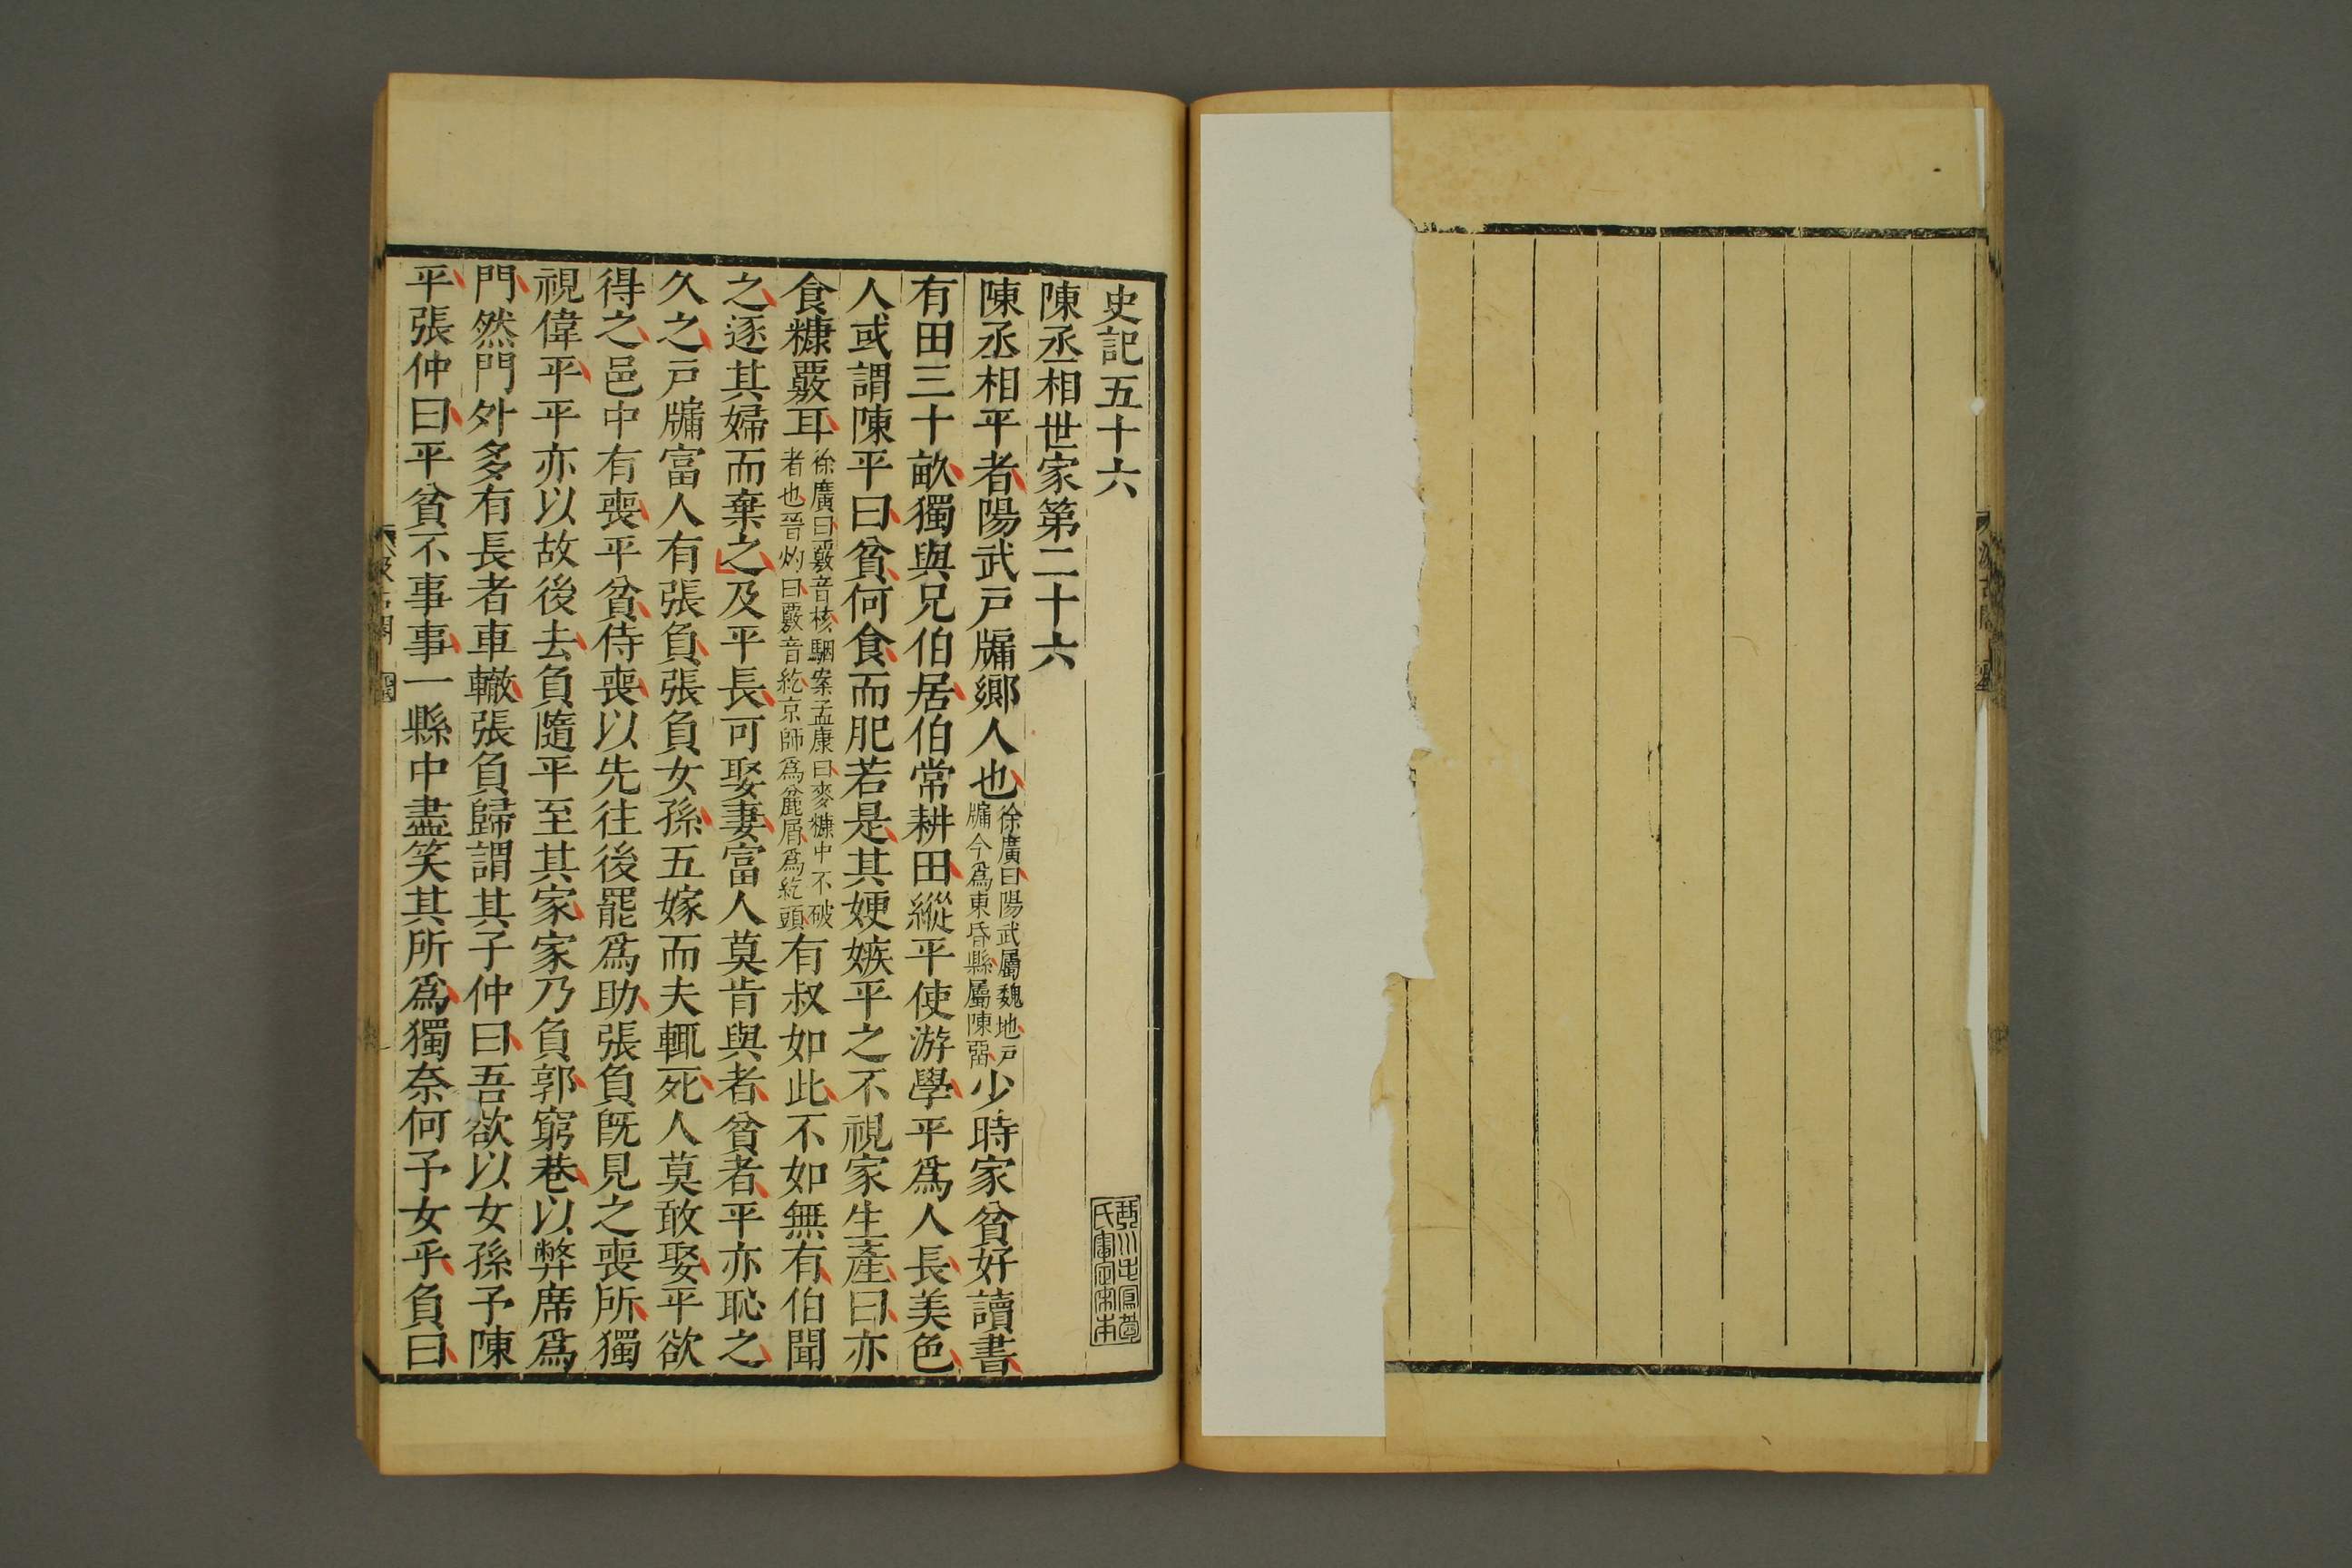 史記五十六
琴川毛鳳苞氏審定宋本
陳丞相世家第二十六
陳丞相平者陽武戸牖鄉人也徐廣曰陽武屬魏地戸牖今爲東昏縣屬陳畱少時家貧好讀書
有田三十畝獨與兄伯居伯常耕田縱平使游學平爲人長美色
人或謂陳平曰貧何食而肥若是其㛐嫉平之不視家生產曰亦
食糠覈耳徐廣曰覈音核駰案孟康曰麥糠中不破者也晉灼曰覈音紇京師爲麄屑爲紇頭有叔如此不如無有伯聞
之逐其婦而棄之及平長可娶妻富人莫肯與者貧者平亦恥之
久之戸牖富人有張負張負女孫五嫁而夫輒死人莫敢娶平欲
得之邑中有喪平貧侍喪以先往後罷爲助張負既見之喪所獨
視偉平平亦以故後去負隨平至其家家乃負郭窮巷以弊席爲
門然門外多有長者車轍張負歸謂其子仲曰吾欲以女孫予陳
平張仲曰平貧不事事一縣中盡笑其所爲獨奈何予女乎負曰